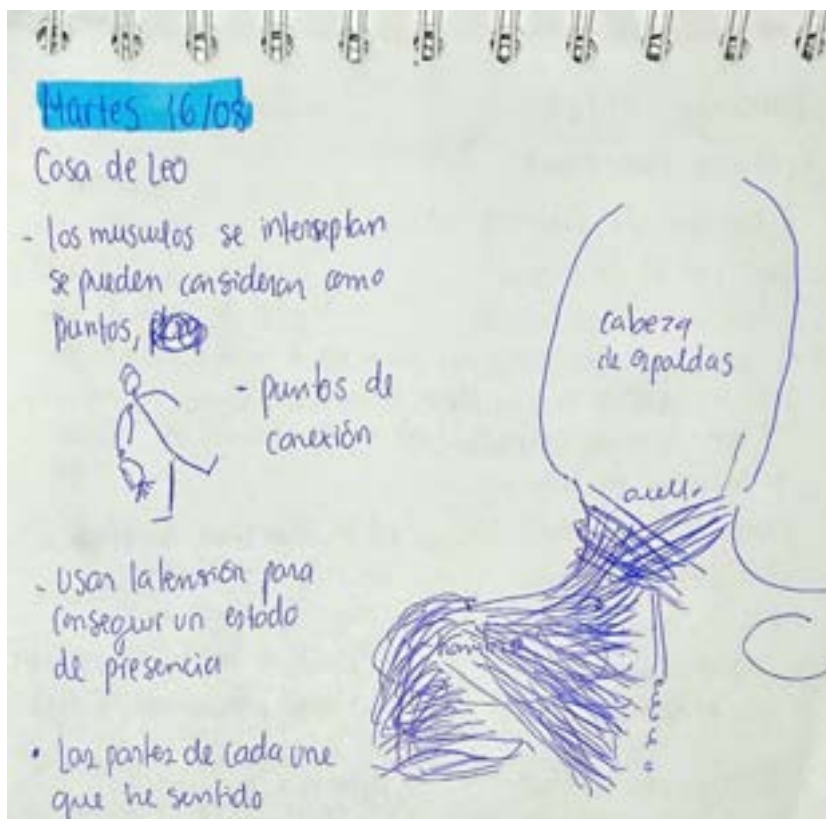 Martes 16/08
Casa de Leo
- los musculos se interseptan
se pueden considerar como
puntos,
- puntos de
conexión
- Usar la tensión para
conseguir un estado
de presencia
• Las partes de cada une
que he sentido
cabeza
de espaldas
cuello
hombro